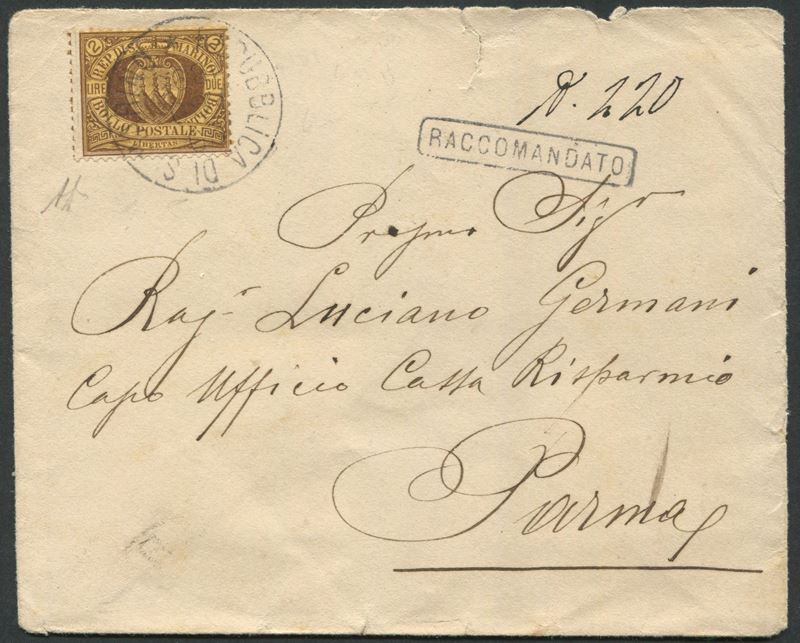 2 REP. DI S. MARINO 2
LIRE DUE
BOLLO POSTALE
LIBERTAS
REPUBBLICA DI S.
N. 220
RACCOMANDATO
Pregmo Sigr
Rag. Luciano Germani
Capo Ufficio Cassa Risparmio
Parma